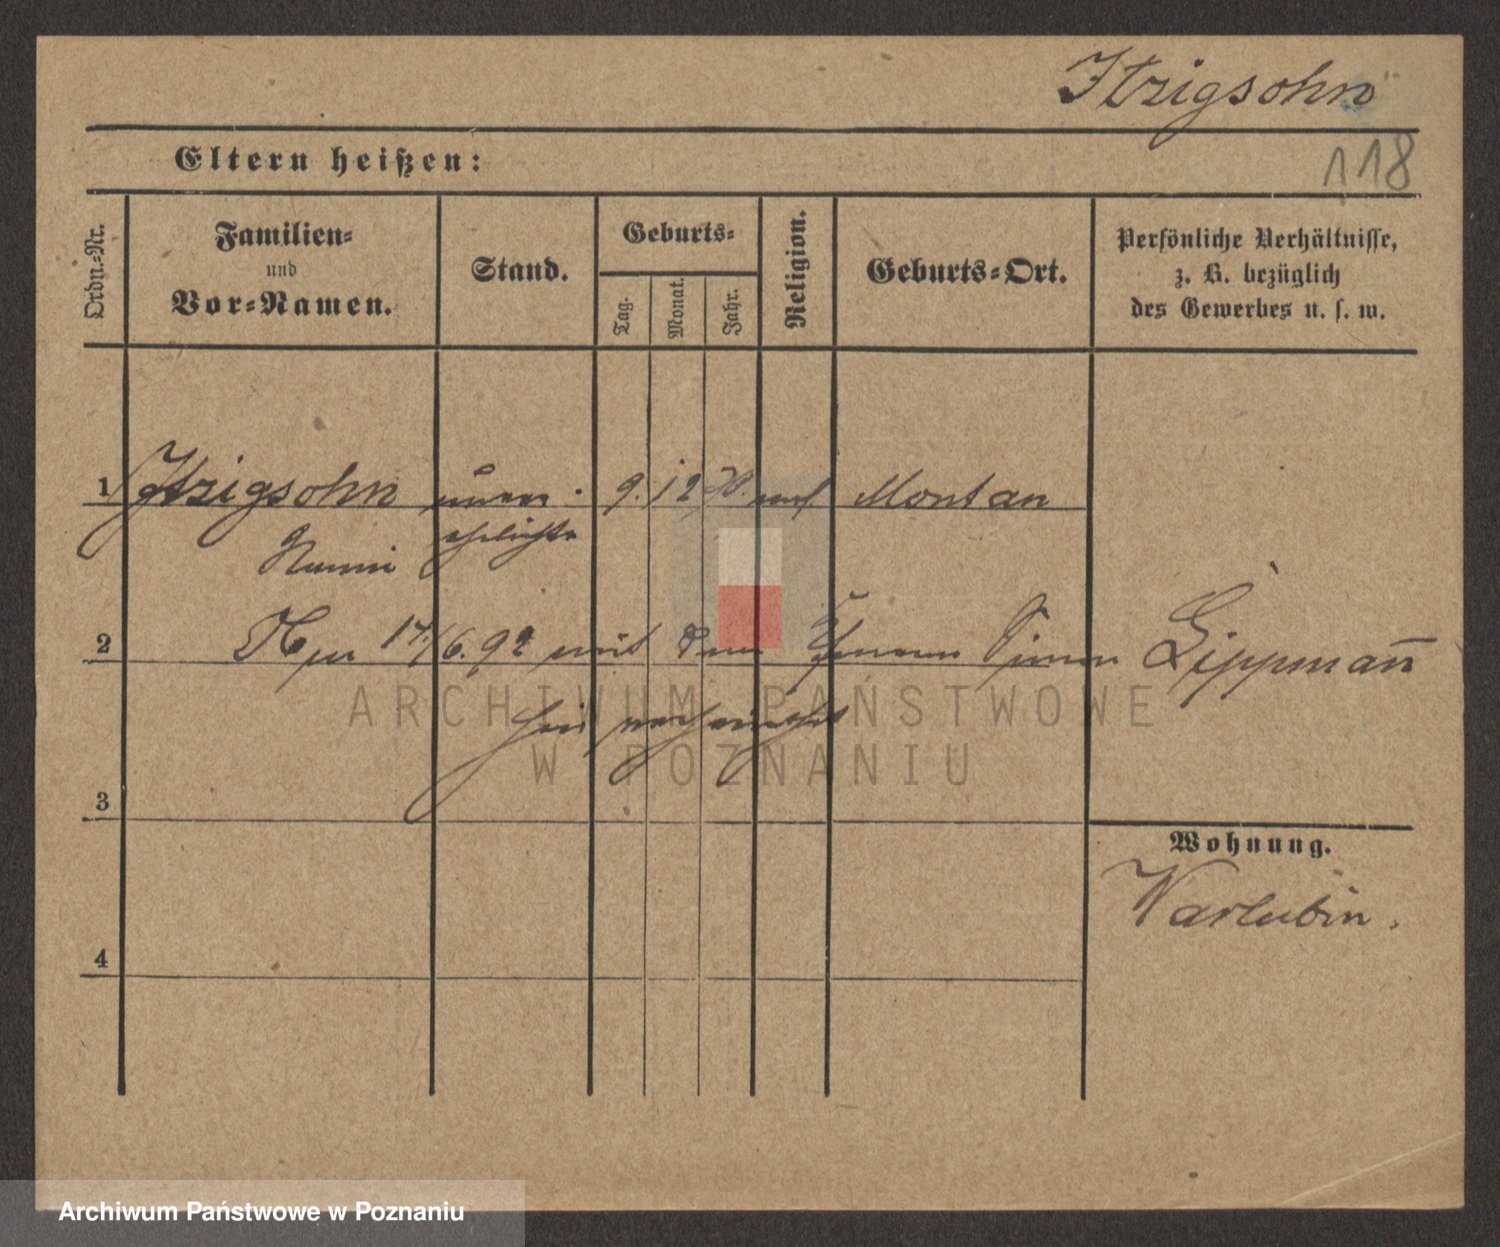 Itzigsohn
118
Eltern heißen:
Ordn.-Nr.
Familien-
und
Vor-Namen.
Stand.
Geburts-
Tag.
Monat.
Jahr.
Religion.
Geburts-Ort.
Persönliche Verhältnisse,
z. B. bezüglich
des Gewerbes u. s. w.
1 Itzigsohn unver- 9. 12 mos Montau
Nanni ehelichte
2 17/6. 92 mit dem Simon Lippmañ
hier verheirathet
3
Wohnung.
Warlubin.
4
ARCHIWUM PAŃSTWOWE
W POZNANIU
Archiwum Państwowe w Poznaniu